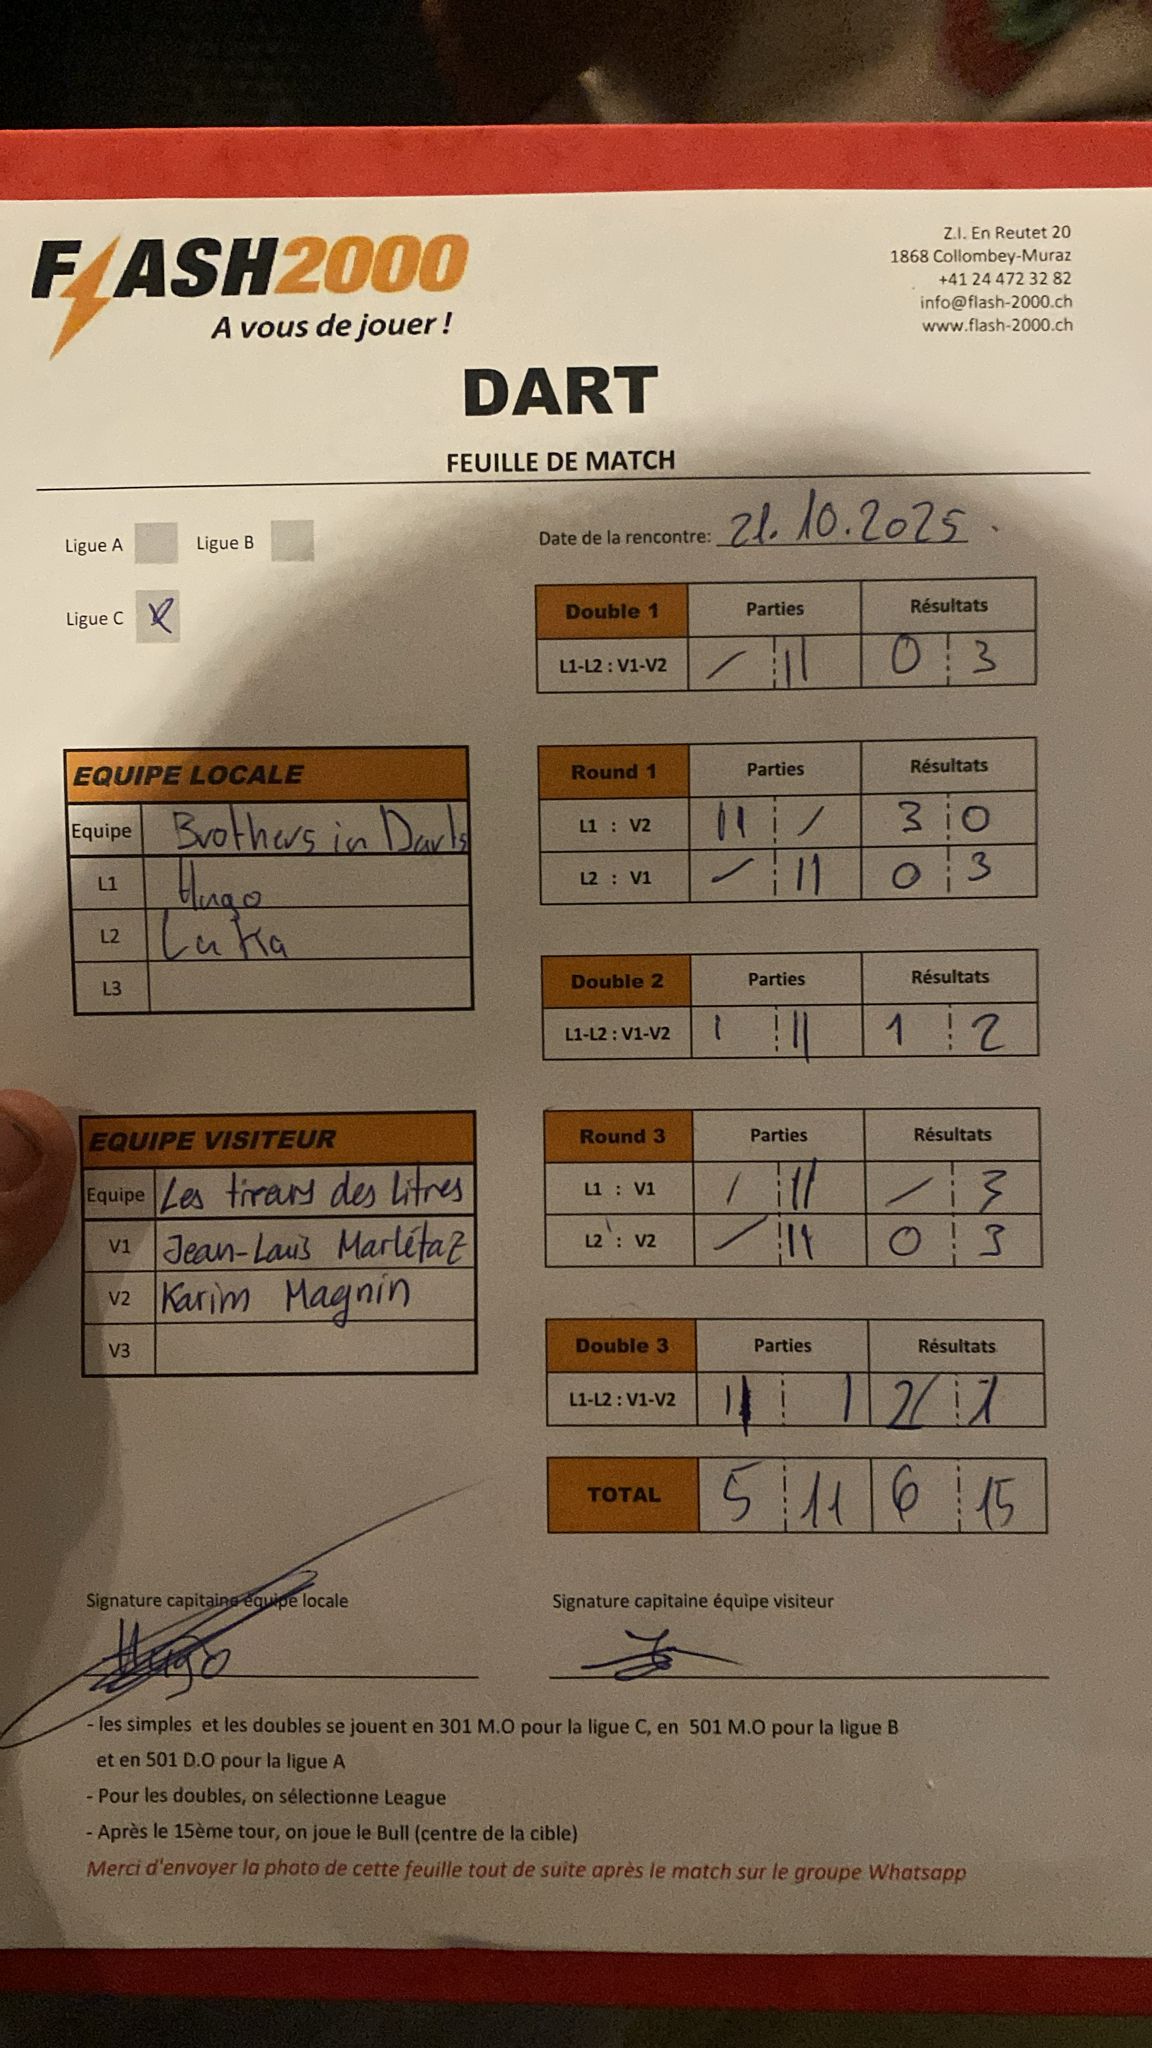 FLASH2000
A vous de jouer !
Z.I. En Reutet 20
1868 Collombey-Muraz
+41 24 472 32 82
info@flash-2000.ch
www.flash-2000.ch
DART
FEUILLE DE MATCH
Ligue A Ligue B
Ligue C X
Date de la rencontre: 21.10.2025.
Double 1 Parties Résultats
L1-L2 : V1-V2 / || 0 3
EQUIPE LOCALE
Equipe Brothers in Darts
L1 Hugo
L2 Luka
L3
Round 1 Parties Résultats
L1 : V2 || / 3 0
L2 : V1 / || 0 3
Double 2 Parties Résultats
L1-L2 : V1-V2 | || 1 2
EQUIPE VISITEUR
Equipe Les tireurs des litres
V1 Jean-Louis Marlétaz
V2 Karim Magnin
V3
Round 3 Parties Résultats
L1 : V1 / || / 3
L2 : V2 / || 0 3
Double 3 Parties Résultats
L1-L2 : V1-V2 || | 2 1
TOTAL 5 11 6 15
Signature capitaine équipe locale
Hugo
Signature capitaine équipe visiteur
- les simples et les doubles se jouent en 301 M.O pour la ligue C, en 501 M.O pour la ligue B
et en 501 D.O pour la ligue A
- Pour les doubles, on sélectionne League
- Après le 15ème tour, on joue le Bull (centre de la cible)
Merci d'envoyer la photo de cette feuille tout de suite après le match sur le groupe Whatsapp